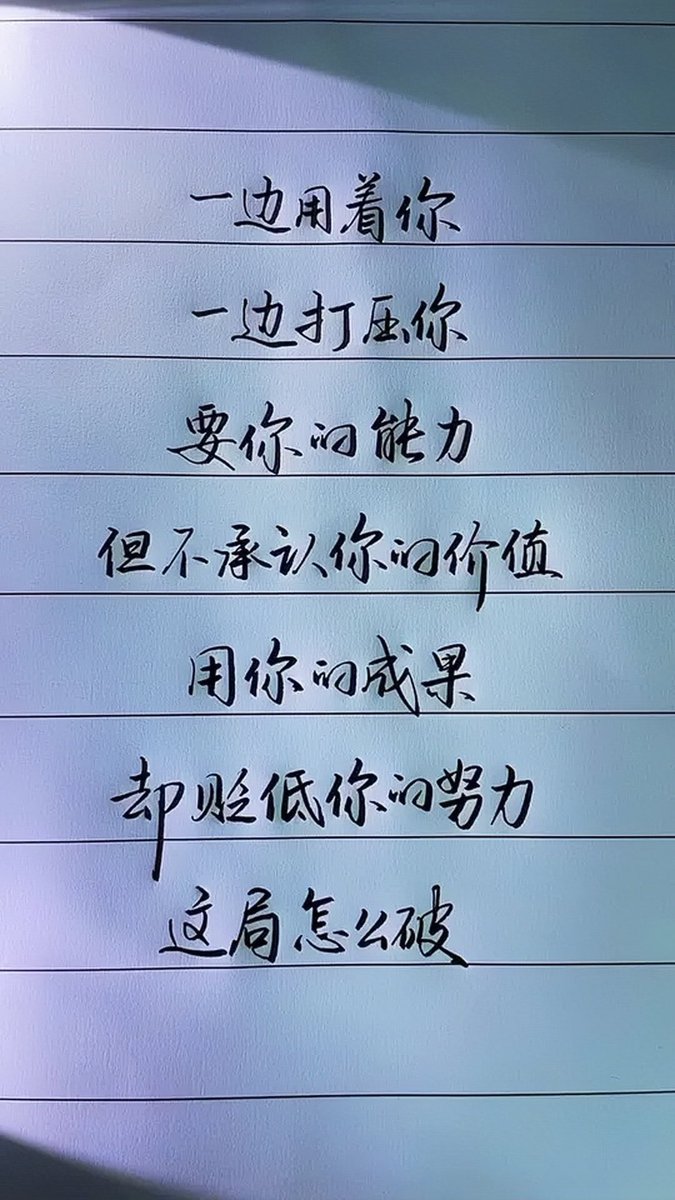 一边用着你
一边打压你
要你的能力
但不承认你的价值
用你的成果
却贬低你的努力
这局怎么破